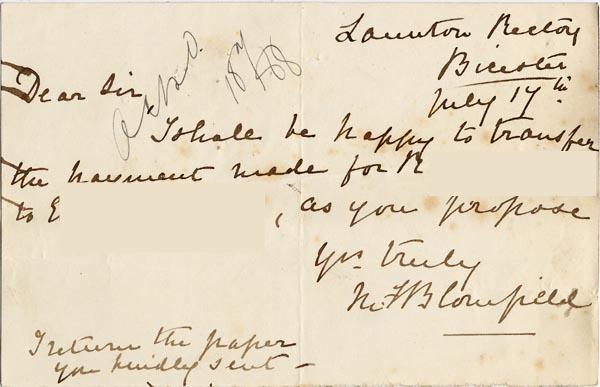 Launton Rectory
Bicester
July 17th.
Dear Sir,
I shall be happy to transfer
the payment made for R
to E , as you propose
Yrs truly
Blomfield
I return the paper
you kindly sent —